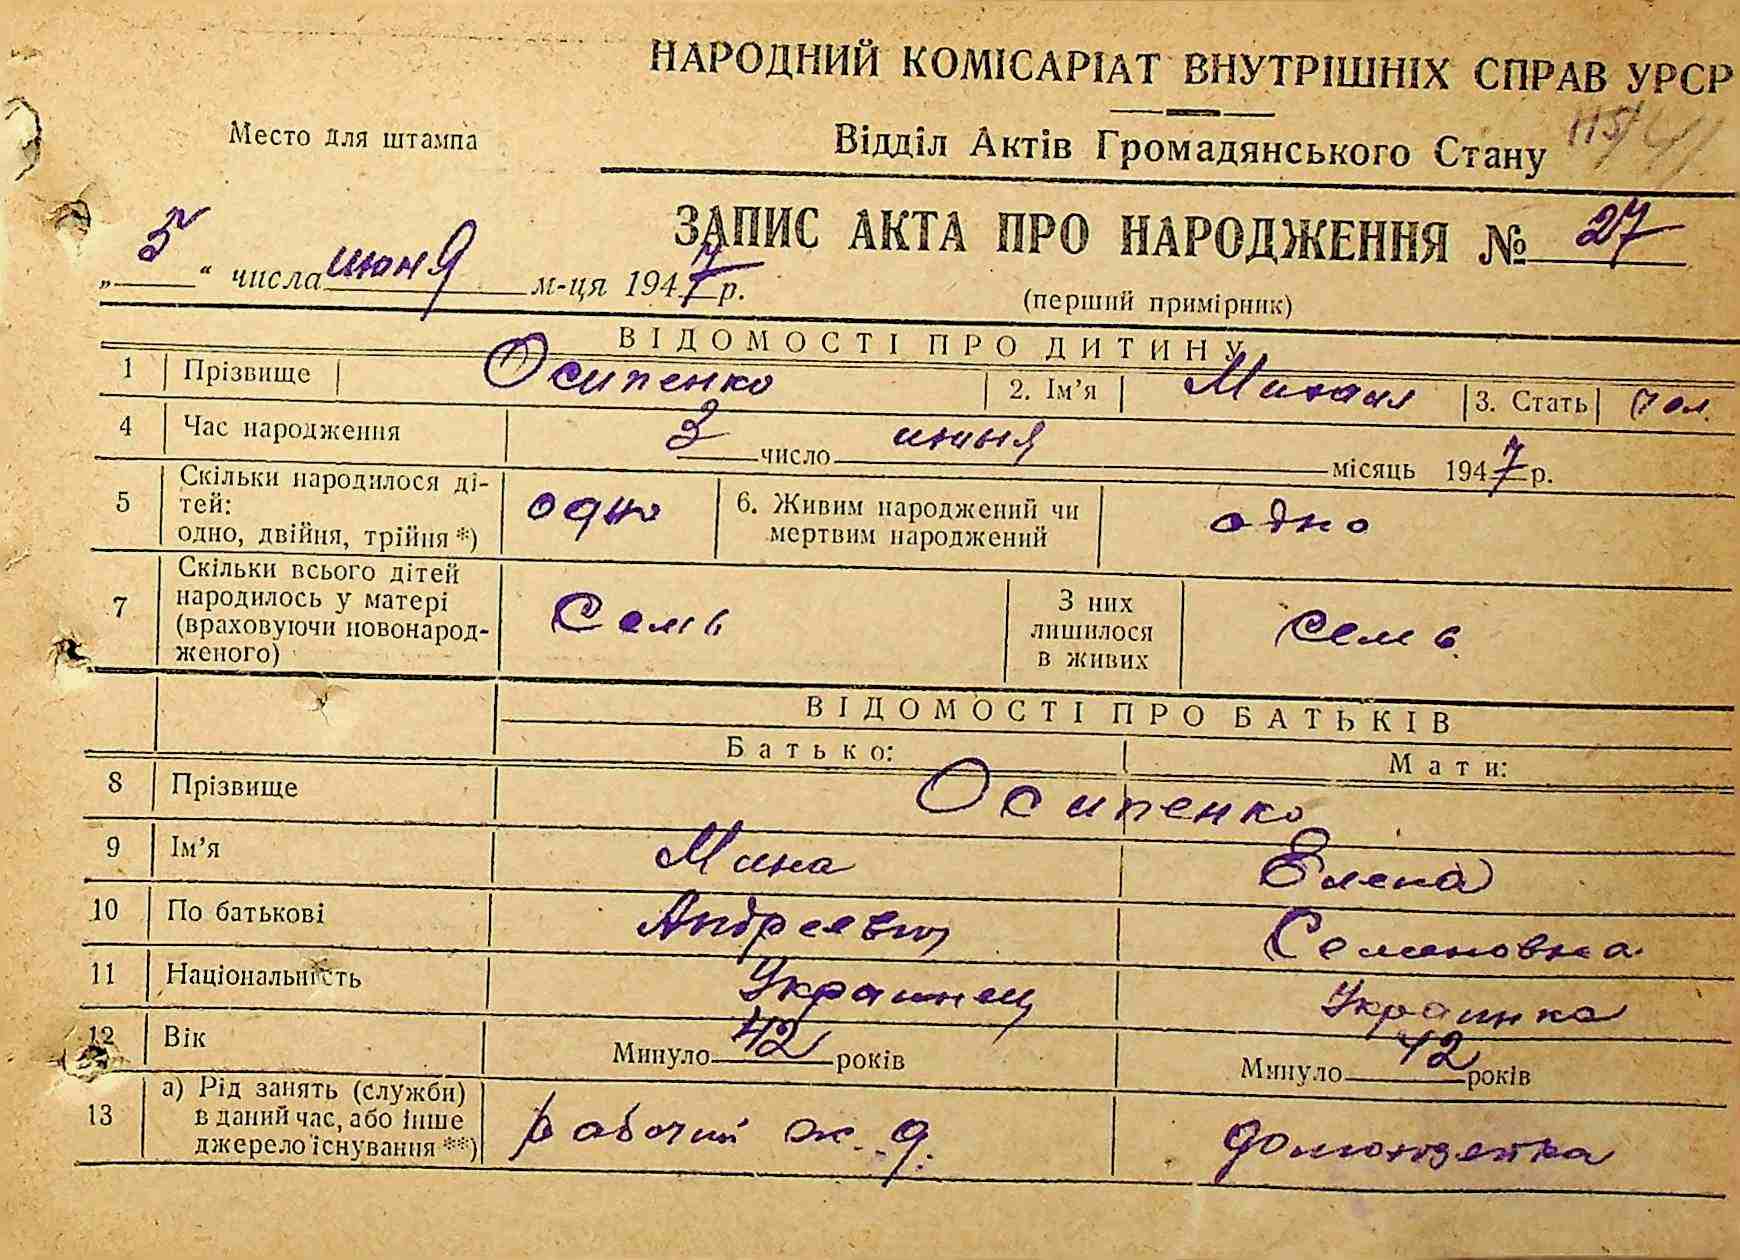 НАРОДНИЙ КОМІСАРІАТ ВНУТРІШНІХ СПРАВ УРСР
Место для штампа
Відділ Актів Громадянського Стану
115/41
ЗАПИС АКТА ПРО НАРОДЖЕННЯ № 27
„ 5 “ числа июня м-ця 1947 р.
(перший примірник)
ВІДОМОСТІ ПРО ДИТИНУ
1 Прізвище Осипенко 2. Ім’я Михаил 3. Стать
4 Час народження 3 число июня місяць 1947 р.
5 Скільки народилося ді-
тей:
одно, двійня, трійня *) одно 6. Живим народжений чи
мертвим народжений одно
7 Скільки всього дітей
народилось у матері
(враховуючи новонарод-
женого) Семь З них
лишилося
в живих семь
ВІДОМОСТІ ПРО БАТЬКІВ
Батько: Мати:
8 Прізвище Осипенко
9 Ім’я Мина Елена
10 По батькові Андреевич Семеновна
11 Національність Украинец Украинка
12 Вік Минуло 42 років Минуло 42 років
13 а) Рід занять (служби)
в даний час, або інше
джерело існування **) рабочий ж. д. домохозяйка